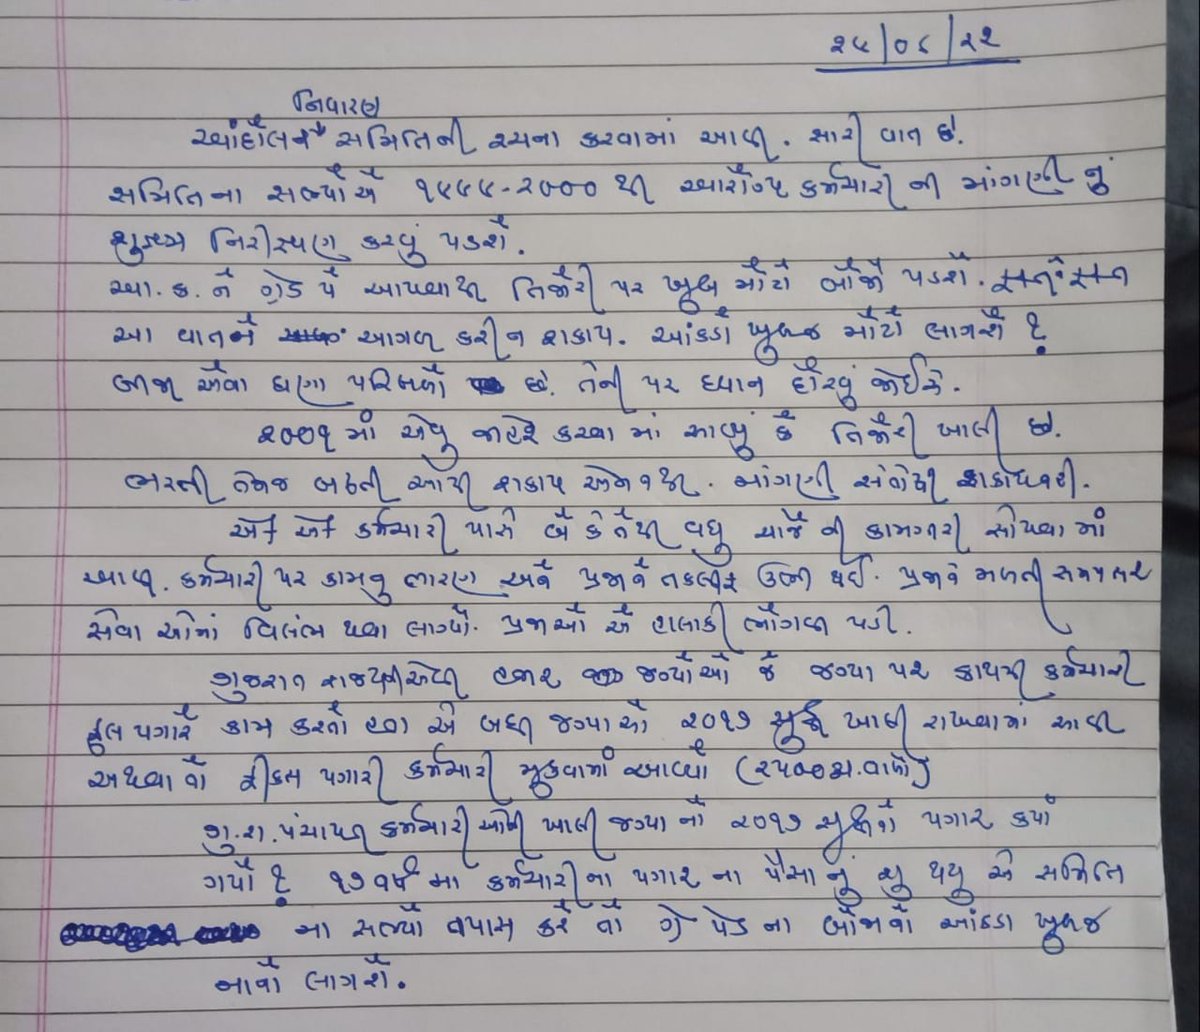 ૨૫/૦૮/૨૨
નિવારણ
આંદોલન સમિતિની રચના કરવામાં આવી. સારી વાત છે.
સમિતિના સભ્યોએ ૧૯૯૯-૨૦૦૦ થી આરોગ્ય કર્મચારી ની માંગણી નું
સુક્ષ્મ નિરીક્ષણ કરવું પડશે.
આ. ક. ને ગ્રેડ પે આપવાથી તિજોરી પર ખુબ મોટો બોજો પડશે.
આ વાતને આગળ કરી ન શકાય. આંકડો ખુબજ મોટો લાગશે ?
બીજા એવા ઘણા પરિબળો છે. તેની પર ધ્યાન દોરવું જોઈએ.
૨૦૦૧ માં એવુ જાહેર કરવા માં આવ્યું કે તિજોરી ખાલી છે.
ભરતી તેમજ બઢતી આપી શકાય એમ નથી. માંગણી સંતોષી શકાય નહી.
એક એક કર્મચારી પાસે બે કે તેથી વધુ ચાર્જ ની કામગીરી સોપવા માં
આવી. કર્મચારી પર કામનુ ભારણ અને પ્રજાને તકલીફ ઉભી થઈ. પ્રજાને મળતી સમયસર
સેવા ઓમાં વિલંબ થવા લાગ્યો. પ્રજાઓ એ હાલાકી ભોગવવી પડી.
ગુજરાત રાજ્યની હજાર જગ્યાઓ જે જગ્યા પર કાયમી કર્મચારી
ફુલ પગારે કામ કરતો હતા એ બધી જગ્યાઓ ૨૦૧૭ સુધી ખાલી રાખવામાં આવી
અથવા તો ફીક્સ પગારી કર્મચારી મુકવામાં આવ્યો (૨૫૦૦રૂ. વાળો)
ગુ.રા. પંચાયતી કર્મચારી ઓની ખાલી જગ્યા નો ૨૦૧૭ સુધીનો પગાર કયાં
ગયો ? ૧૭ વર્ષ મા કર્મચારીના પગાર ના પૈસા નું શુ થયુ એ સમિતિ
ના સભ્યો તપાસ કરે તો ગ્રે પેડ ના બોજાનો આંકડા ખુબજ
નાનો લાગશે.